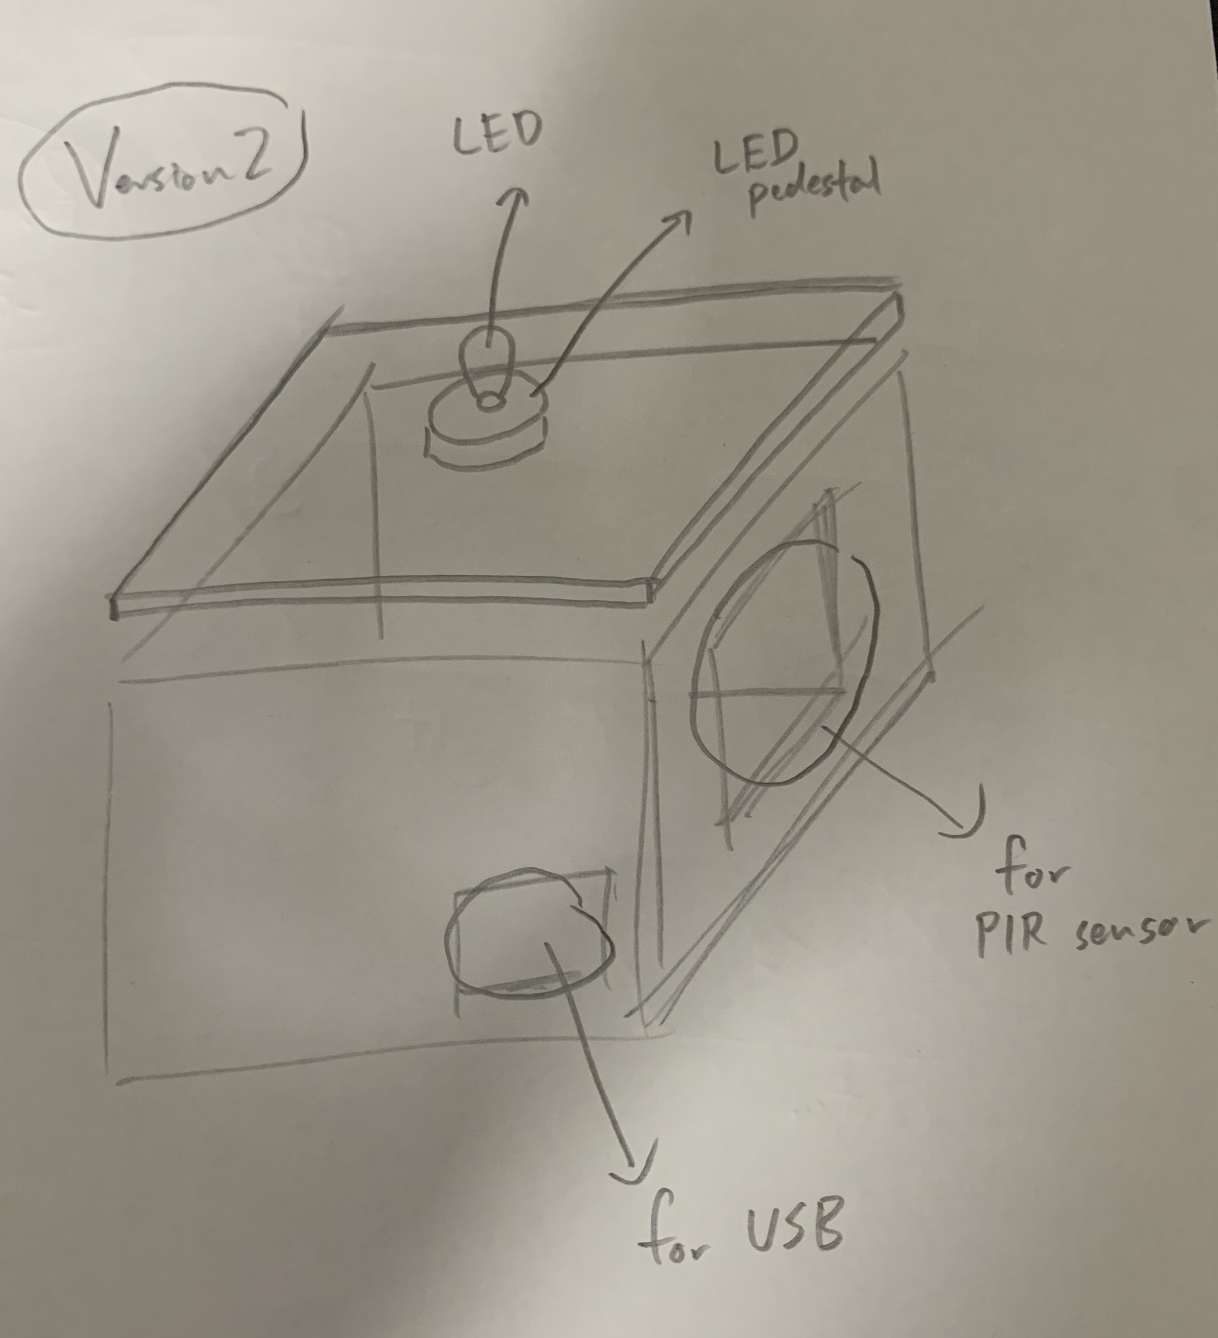 Version 2
LED
LED
pedestal
for
PIR sensor
for USB